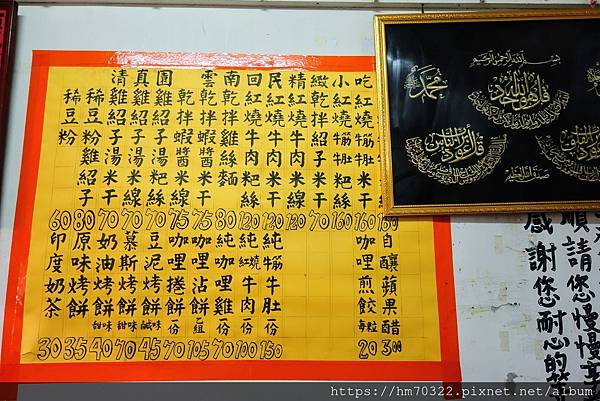 清真園 雲南回民精緻小吃
稀豆粉 60
稀豆粉雞紹子 80
雞紹子湯米干 70
雞紹子湯米線 70
雞紹子湯粑絲 70
乾拌蝦醬米干 75
乾拌蝦醬米線 75
乾拌雞絲麵 80
紅燒牛肉粑絲 120
紅燒牛肉米干 120
紅燒牛肉米線 120
乾拌紹子米干 70
紅燒牛筋牛肚粑絲 160
紅燒牛筋牛肚米干 160
160
印度奶茶 30
原味烤餅 35
奶油烤餅 甜味 40
慕斯烤餅 甜味 70
豆泥烤餅 鹹味 45
咖哩捲餅 份 70
咖哩沾餅 組 105
純咖哩雞 份 70
純紅燒牛肉 份 100
純牛筋牛肚 份 150
咖哩煎餃 每粒 20
自釀蘋果醋 300
بسم الله الرحمن الرحيم
محمد
قل هو الله أحد
قل أعوذ برب الناس
صدق الله العظيم
順請您慢慢享
感謝您耐心的等
https://hm70322.pixnet.net/album